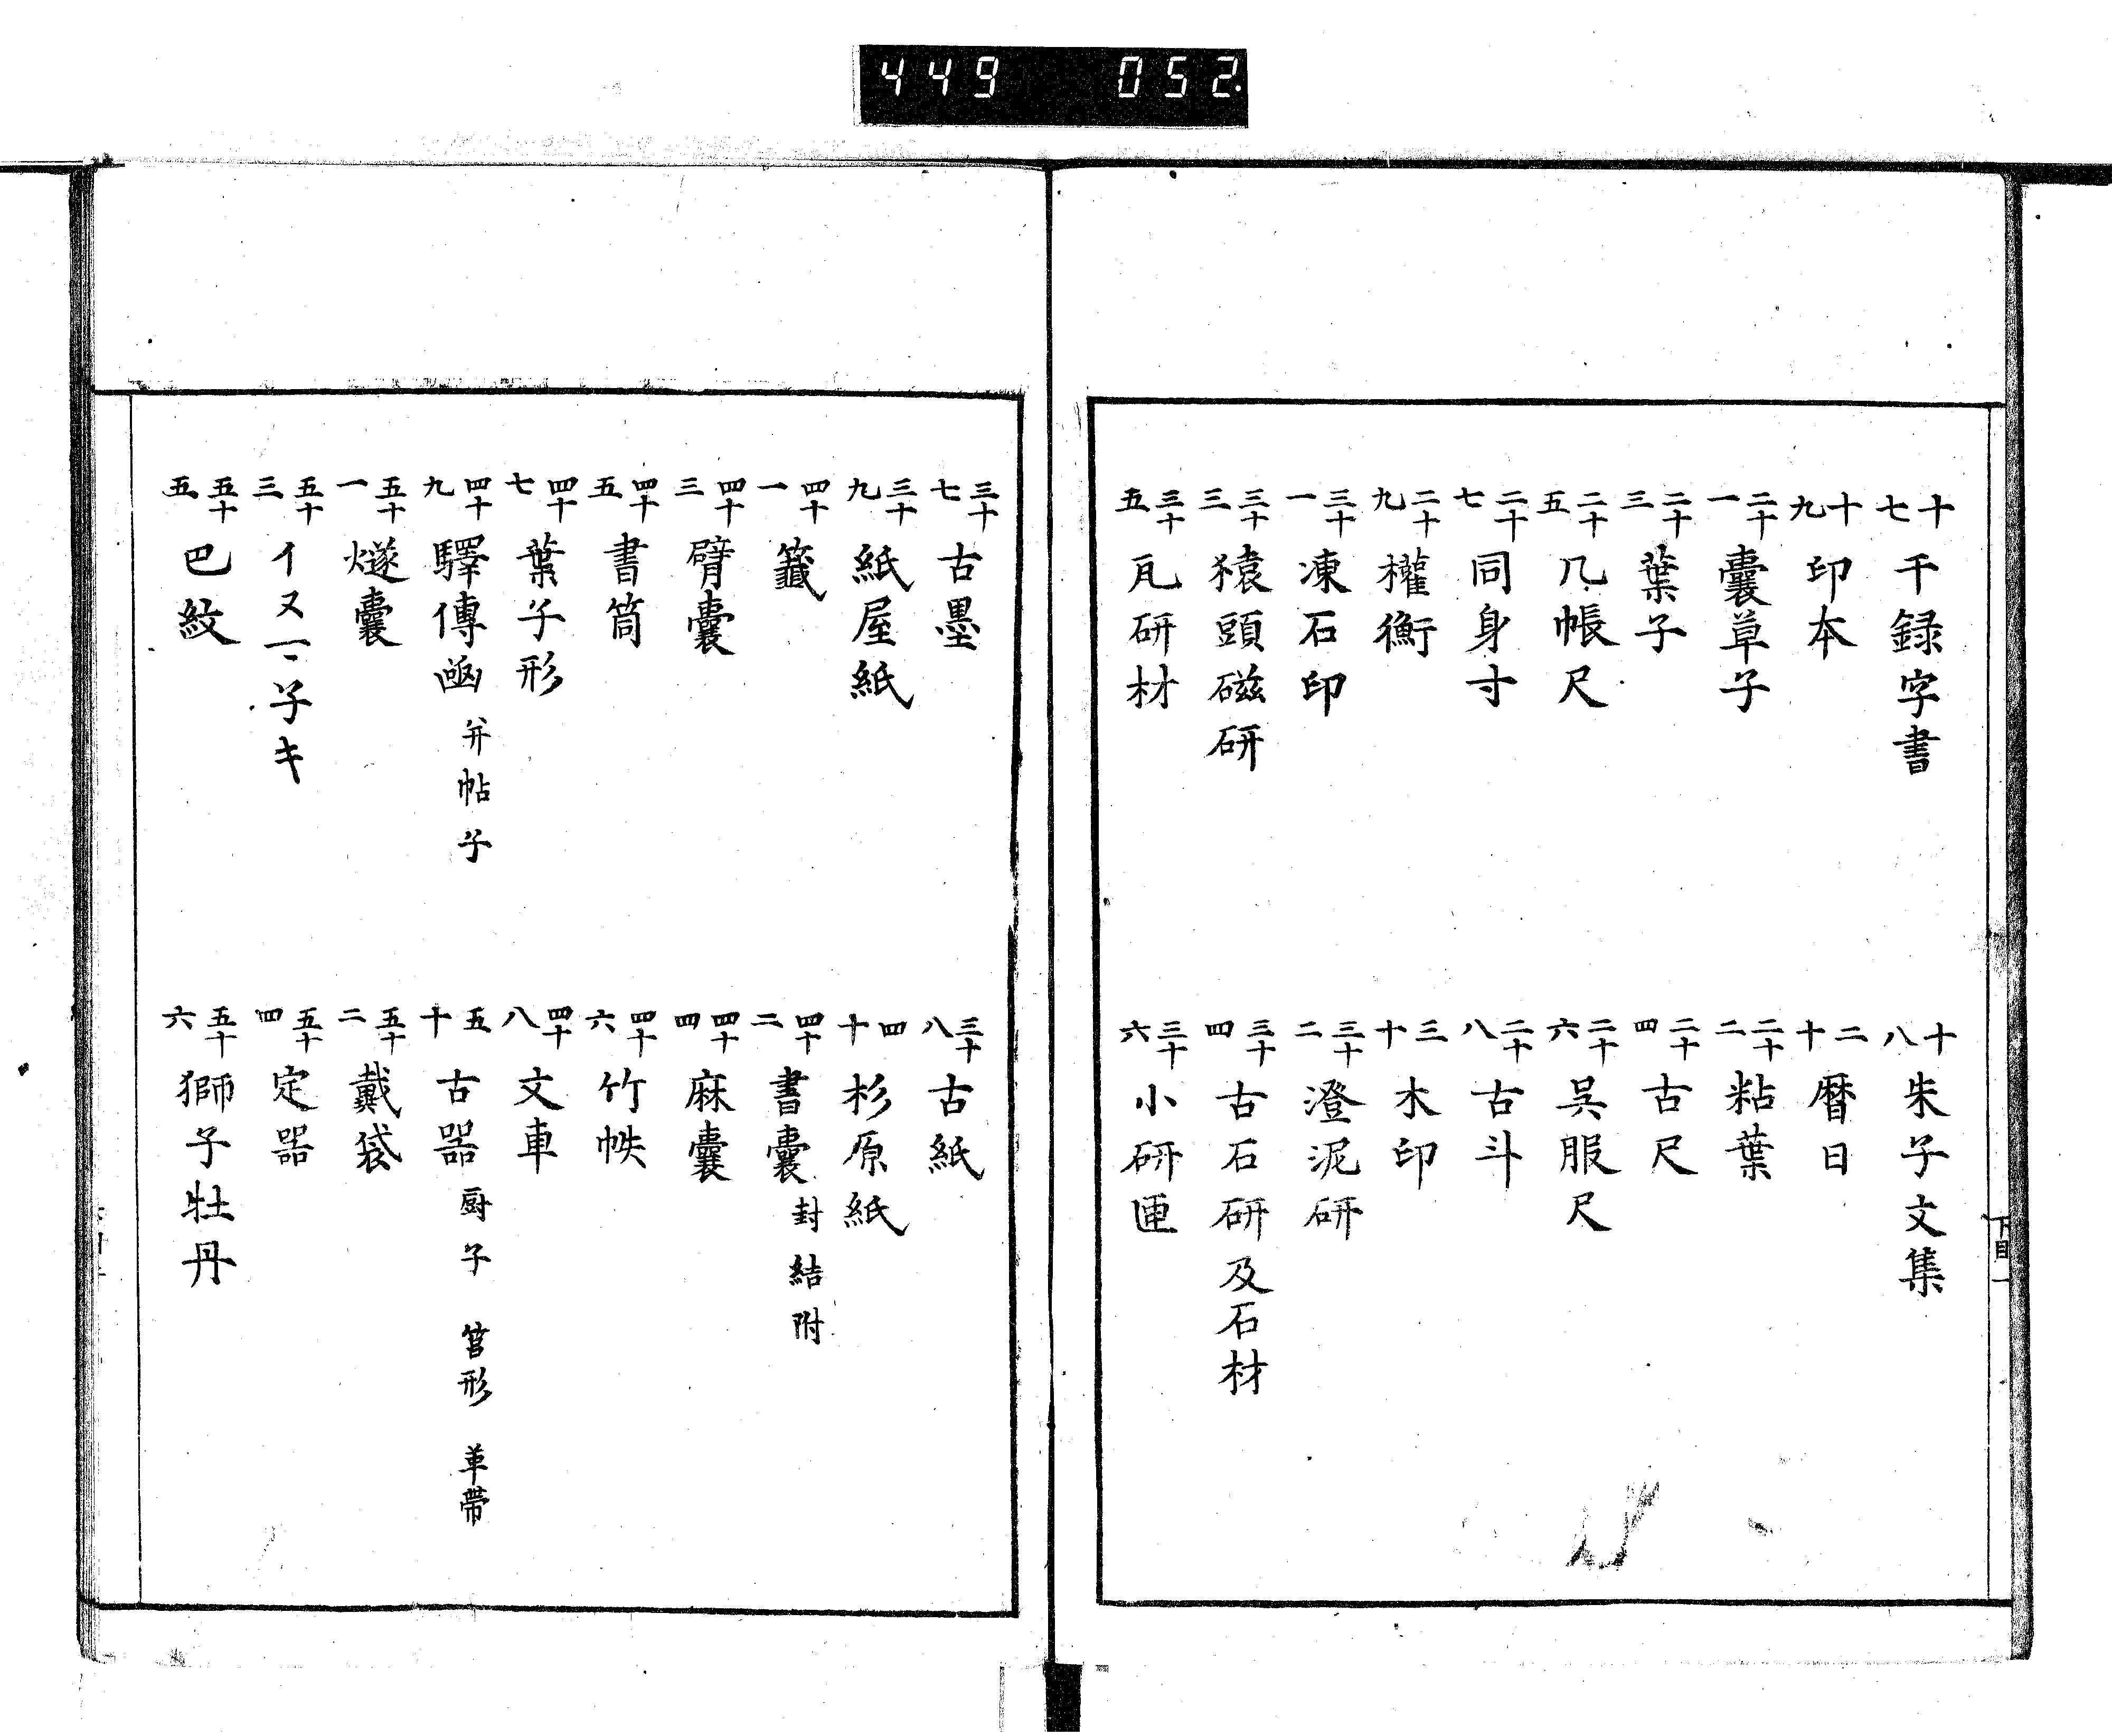 449 052.
十七 干録字書
十八 朱子文集
十九 印本
二十 暦日
二十一 嚢草子
二十二 粘葉
二十三 葉子
二十四 古尺
二十五 几帳尺
二十六 呉服尺
二十七 同身寸
二十八 古斗
二十九 權衡
三十 木印
三十一 凍石印
三十二 澄泥研
三十三 猿頭磁研
三十四 古石研及石材
三十五 瓦研材
三十六 小研匣
下目一
三十七 古墨
三十八 古紙
三十九 紙屋紙
四十 杉原紙
四十一 籤
四十二 書嚢 封結附
四十三 臂嚢
四十四 麻嚢
四十五 書筒
四十六 竹帙
四十七 葉子形
四十八 文車
四十九 驛傳凾 并帖子
五十 古器 厨子 筥形 革帶
五十一 燧嚢
五十二 戴袋
五十三 イヌ子キ
五十四 定器
五十五 巴紋
五十六 獅子牡丹